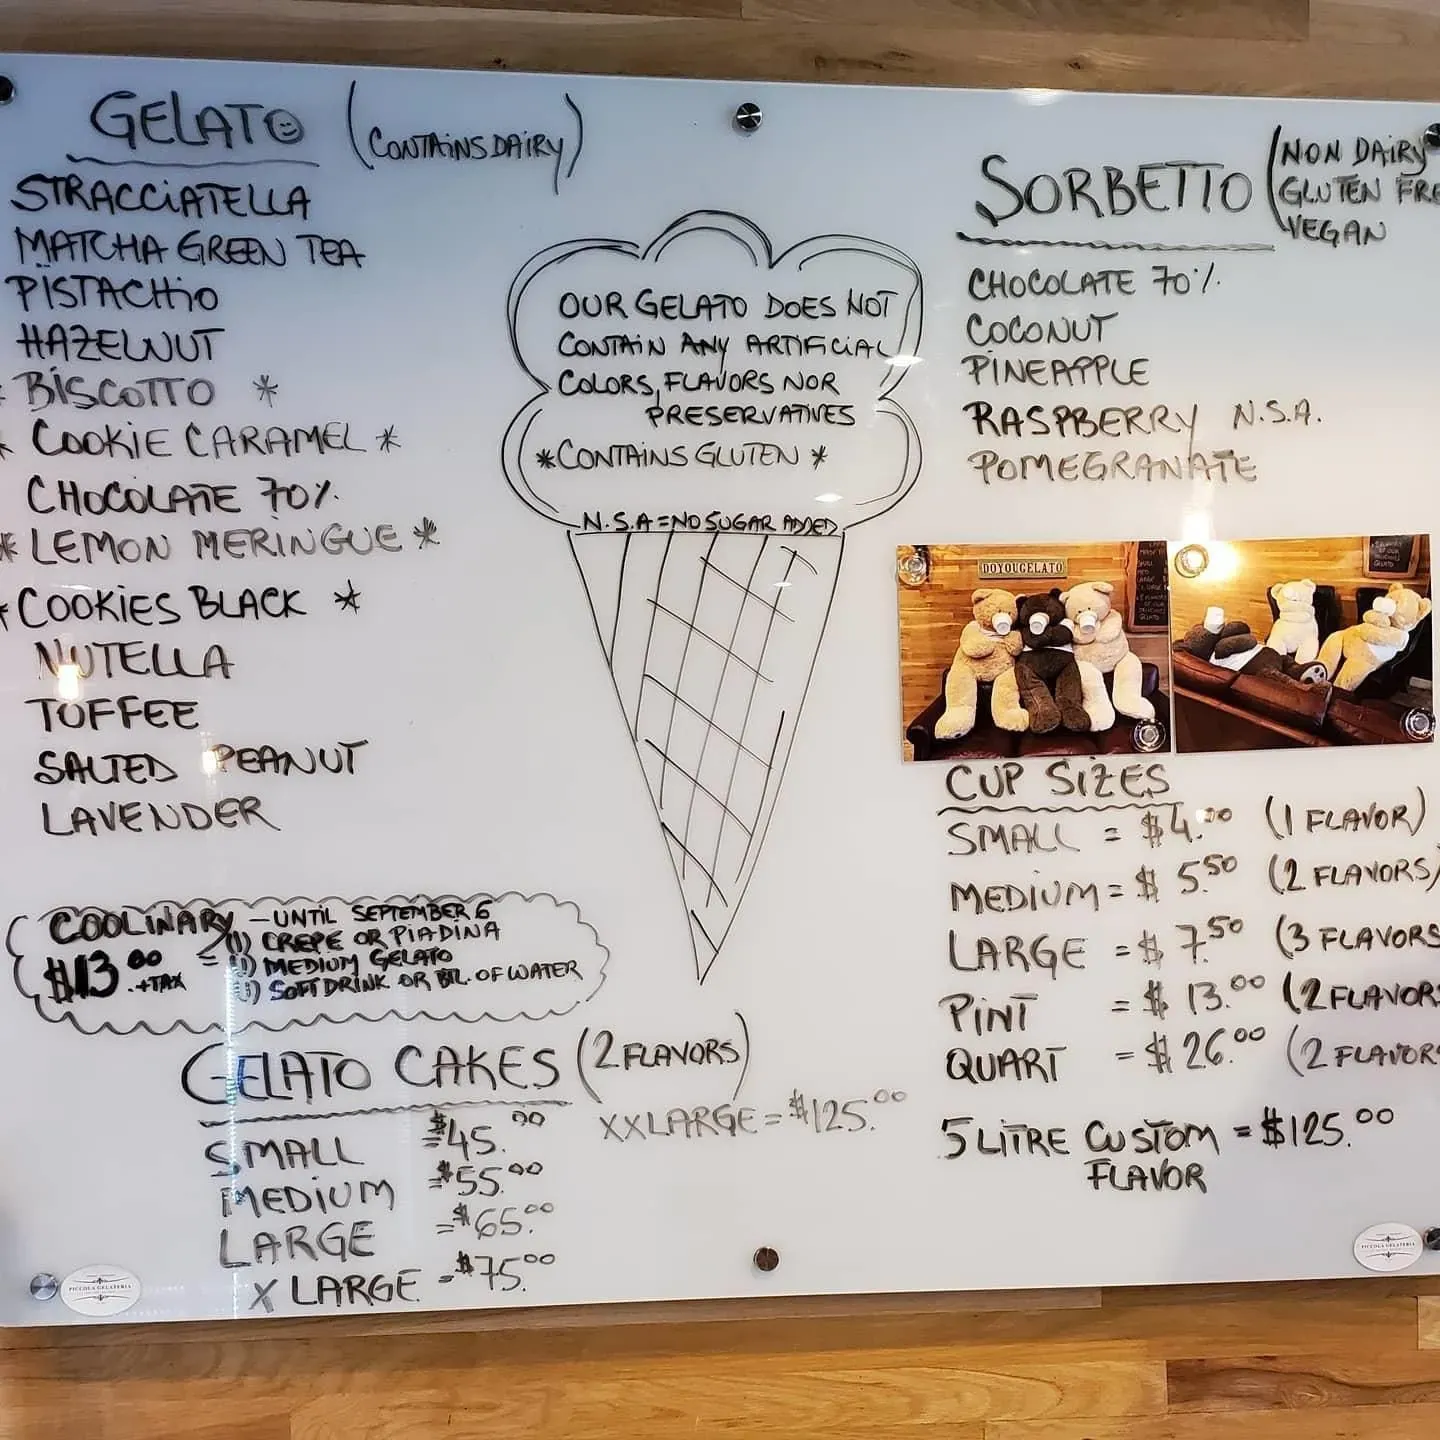 GELATO (CONTAINS DAIRY)
STRACCIATELLA
MATCHA GREEN TEA
PISTACHIO
HAZELNUT
* BISCOTTO *
* COOKIE CARAMEL *
CHOCOLATE 70%
* LEMON MERINGUE *
* COOKIES BLACK *
NUTELLA
TOFFEE
SALTED PEANUT
LAVENDER
OUR GELATO DOES NOT
CONTAIN ANY ARTIFICIAL
COLORS, FLAVORS NOR
PRESERVATIVES
*CONTAINS GLUTEN*
N.S.A = NO SUGAR ADDED
SORBETTO (NON DAIRY
GLUTEN FRE
VEGAN
CHOCOLATE 70%
COCONUT
PINEAPPLE
RASPBERRY N.S.A.
POMEGRANATE
DOYOUGELATO
CUP SIZES
SMALL = $4.00 (1 FLAVOR)
MEDIUM = $5.50 (2 FLAVORS)
LARGE = $7.50 (3 FLAVORS
PINT = $13.00 (2 FLAVORS
QUART = $26.00 (2 FLAVORS
5 LITRE CUSTOM = $125.00
FLAVOR
COOLINARY - UNTIL SEPTEMBER 6
(1) CREPE OR PIADINA
$13.00 +TAX = (1) MEDIUM GELATO
(1) SOFT DRINK OR BTL. OF WATER
GELATO CAKES (2 FLAVORS)
SMALL = $45.00
MEDIUM = $55.00
LARGE = $65.00
X LARGE = $75.00
XXLARGE = $125.00
PICCOLA GELATERIA
PICCOLA GELATERIA